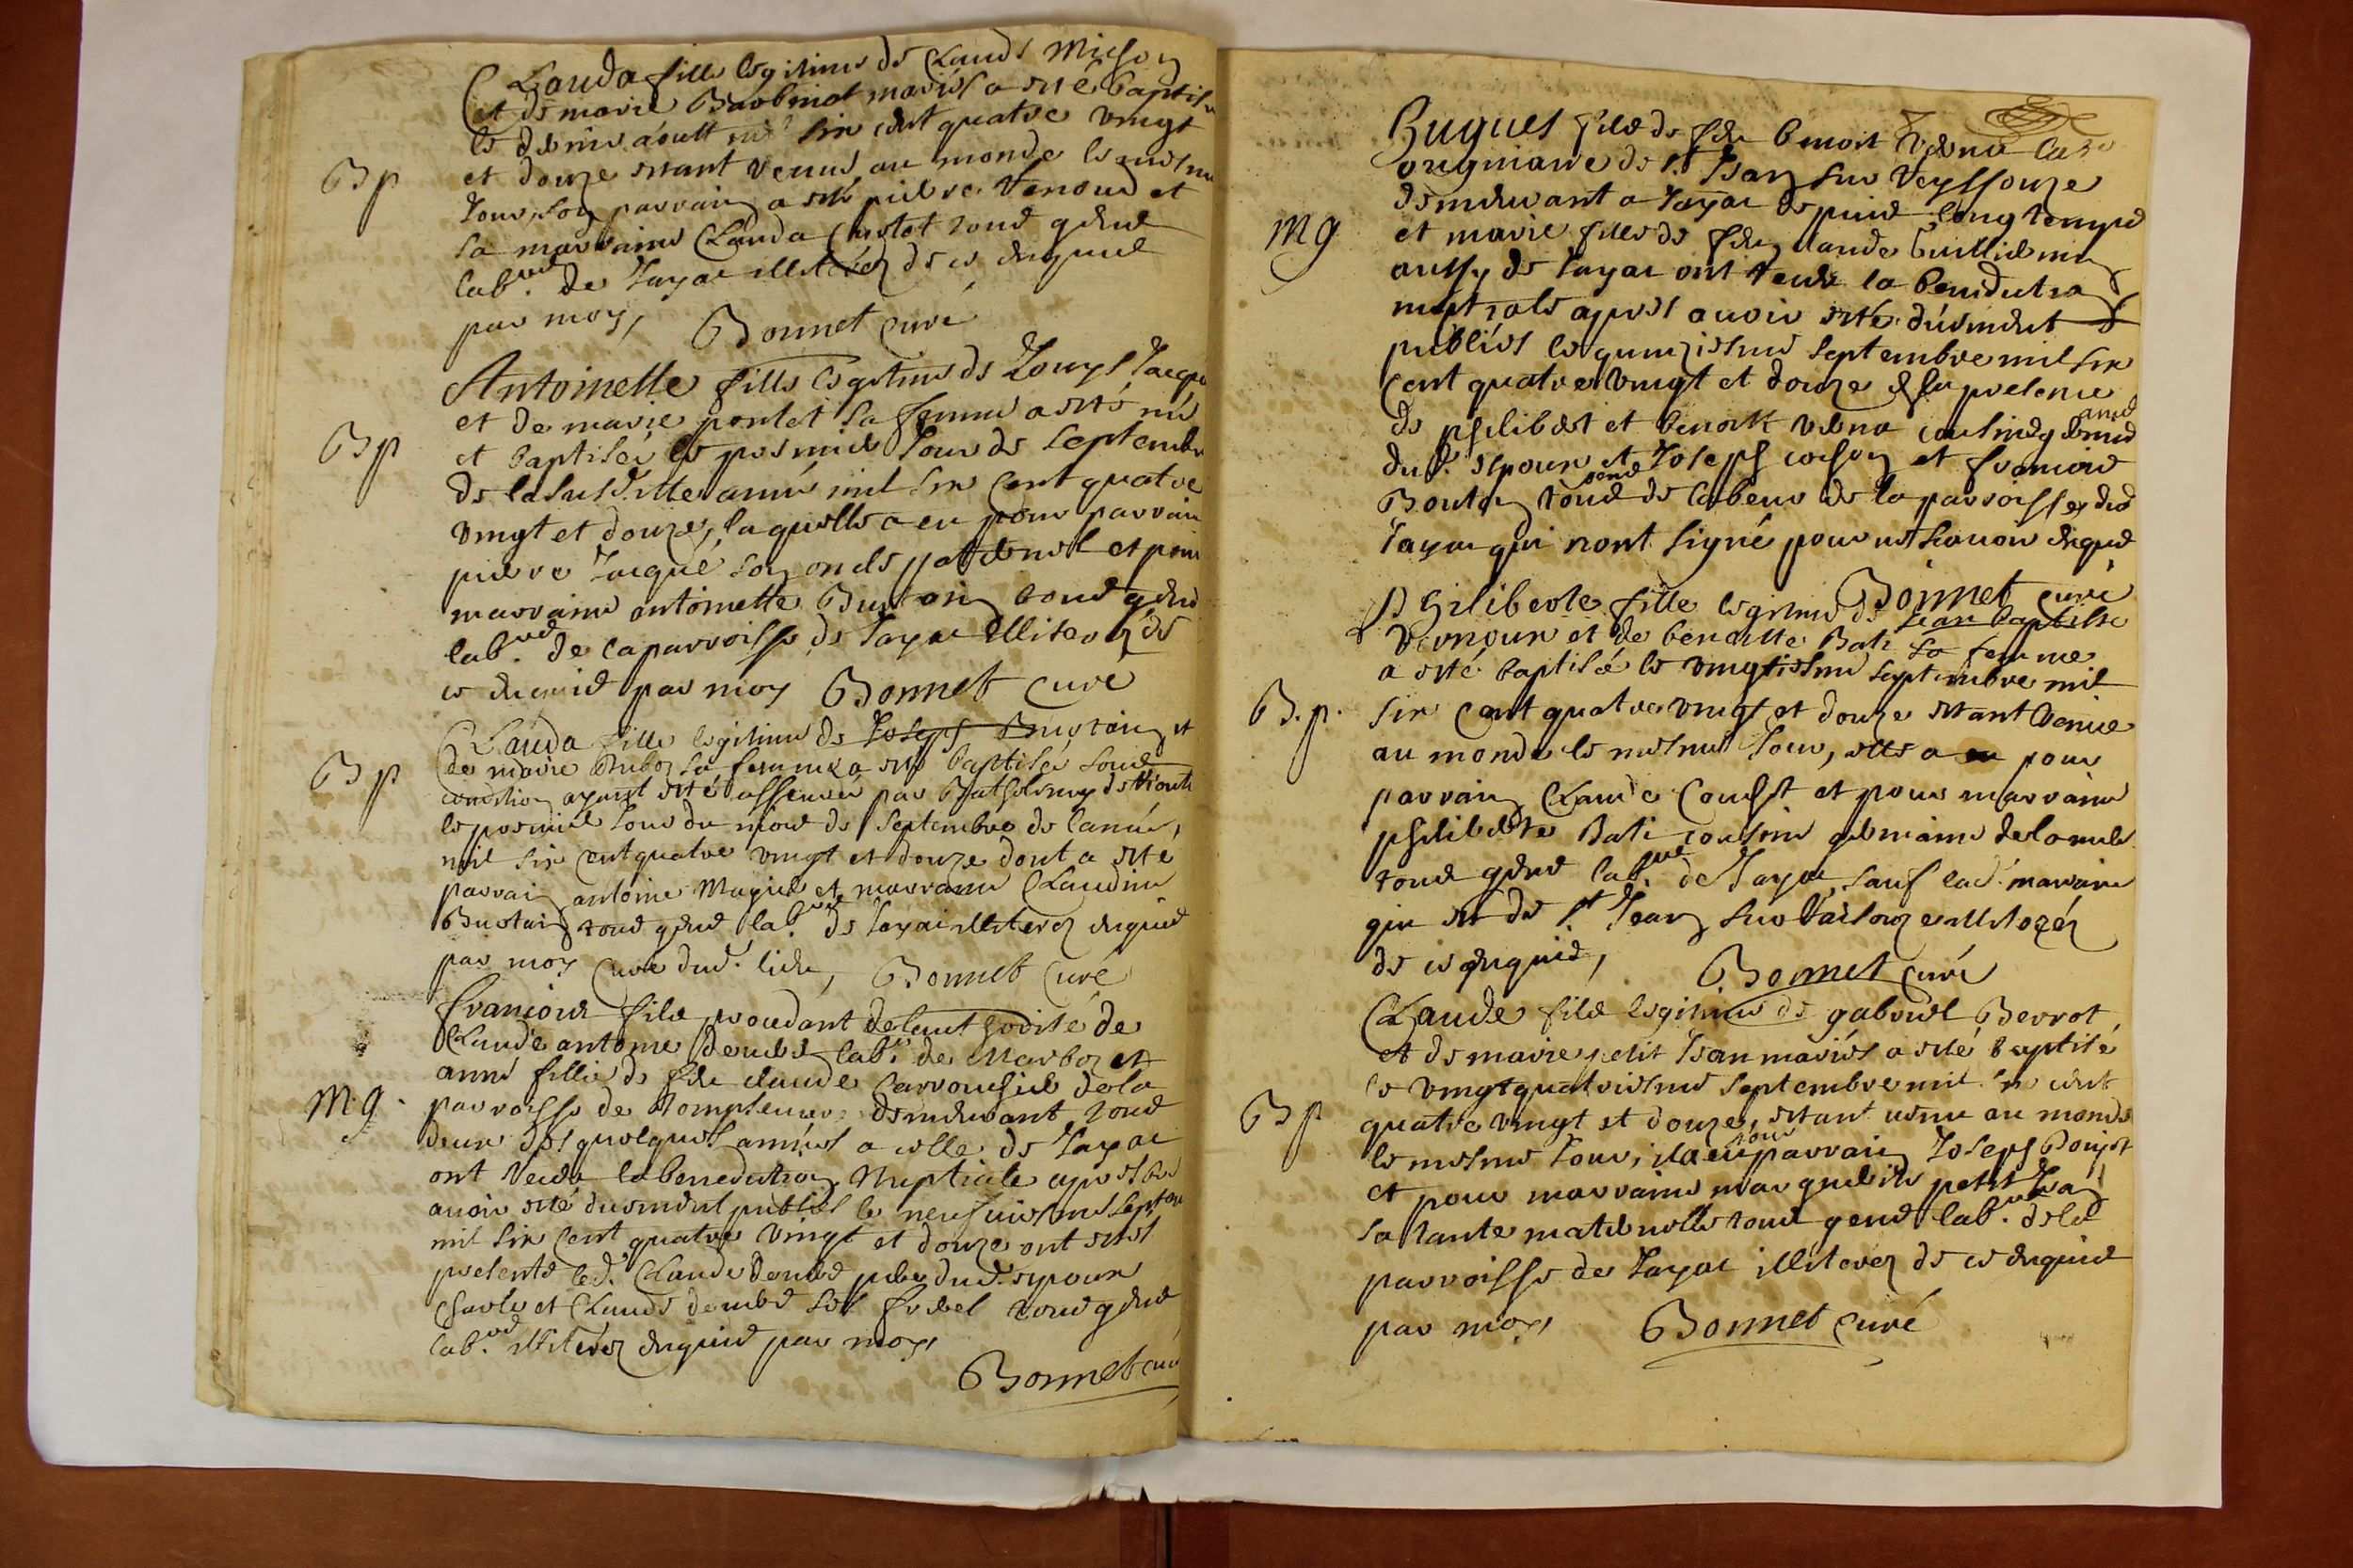 Clauda fille legitime de Claude Michon
et de marie Barbinot mariés a esté baptisé
le dernier aoust mil six cent quatre vingt
Bp
et douze estant venue au monde le mesme
jour, son parrain a esté pierre Venoud et
sa marraine Clauda Curtet tous gens
lab.rs de Jayac illiterez de ce enquis
par moy, Bonnet curé
Antoinette fille legitime de Louys Jacque
et de marie pontet sa femme a esté née
Bp
et baptisée le premier jour de septembre
de la susditte année mil six cent quatre
vingt et douze, laquelle a eu pour parrain
pierre Jacque son oncle paternel et pour
marraine antoinette Buston tous gens
lab.rs de la parroisse de Jayac illiterez de
ce enquis par moy Bonnet curé
Clauda fille legitime de Joseph Bustain et
Bp
de marie sa femme a esté baptisée sous
condition ayant esté assurée par
le premier jour du mois de septembre de l'année,
mil six cent quatre vingt et douze dont a esté
parrain antoine et marraine Claudine
Bustain tous gens lab.rs de Jayac illiterez enquis
par moy curé dud. lieu, Bonnet curé
francois fils de
Claude antoine lab.r de Marboz et
anne fille de feu claude de la
M.g.
parroisse de demeurant tous
deux des quelques années a celle de Jayac
ont receu la benediction Nuptiale apres
avoir esté duement publiés le neufuiesme septbre
mil six cent quatre vingt et douze ont estés
presents led. Claude pere dud. epoux
Charles et Claude ses freres tous gens
lab.rs illiterez enquis par moy,
Bonnet curé
Hugues fils de feu benoit
originaire de St Jean sur Veyssouze
demeurant a Jayac depuis long temps
Mg
et marie fille de feu claude Guilliemin
aussy de Jayac ont receu la benediction
nuptiale apres avoir esté duement
publiés le quinziesme septembre mil six
cent quatre vingt et douze en presence
de philibert et benoitt cousins germains
dud. espoux et Joseph et francois
Bouton tous de labeur de la parroisse dud
Jayac qui nont signé pour ne scavoir enquis
Bonnet curé
Philiberte fille legitime de Jean baptiste
Vernoux et de benoitte Bati sa femme
a esté baptisée le vingtiesme septembre mil
B.p.
six cent quatre vingt et douze estant venue
au monde le mesme jour, elle a eu pour
parrain Claude et pour marraine
philiberte Bati cousine germaine
tous gens lab.rs de Jayac, sauf lad. marraine
qui est de St Jean sur illiterez
de ce enquis, Bonnet curé
Claude fils legitime de gabriel Berrot
et de marie petit Jean mariés a esté baptisé
le vingtquatriesme septembre mil six cent
Bp
quatre vingt et douze, estant venu au monde
le mesme jour, il a eu pour parrain Joseph
et pour marraine marguerite petit Jean
sa tante maternelle tous gens lab.rs de la
parroisse de Jayac illiterez de ce enquis
par moy, Bonnet curé